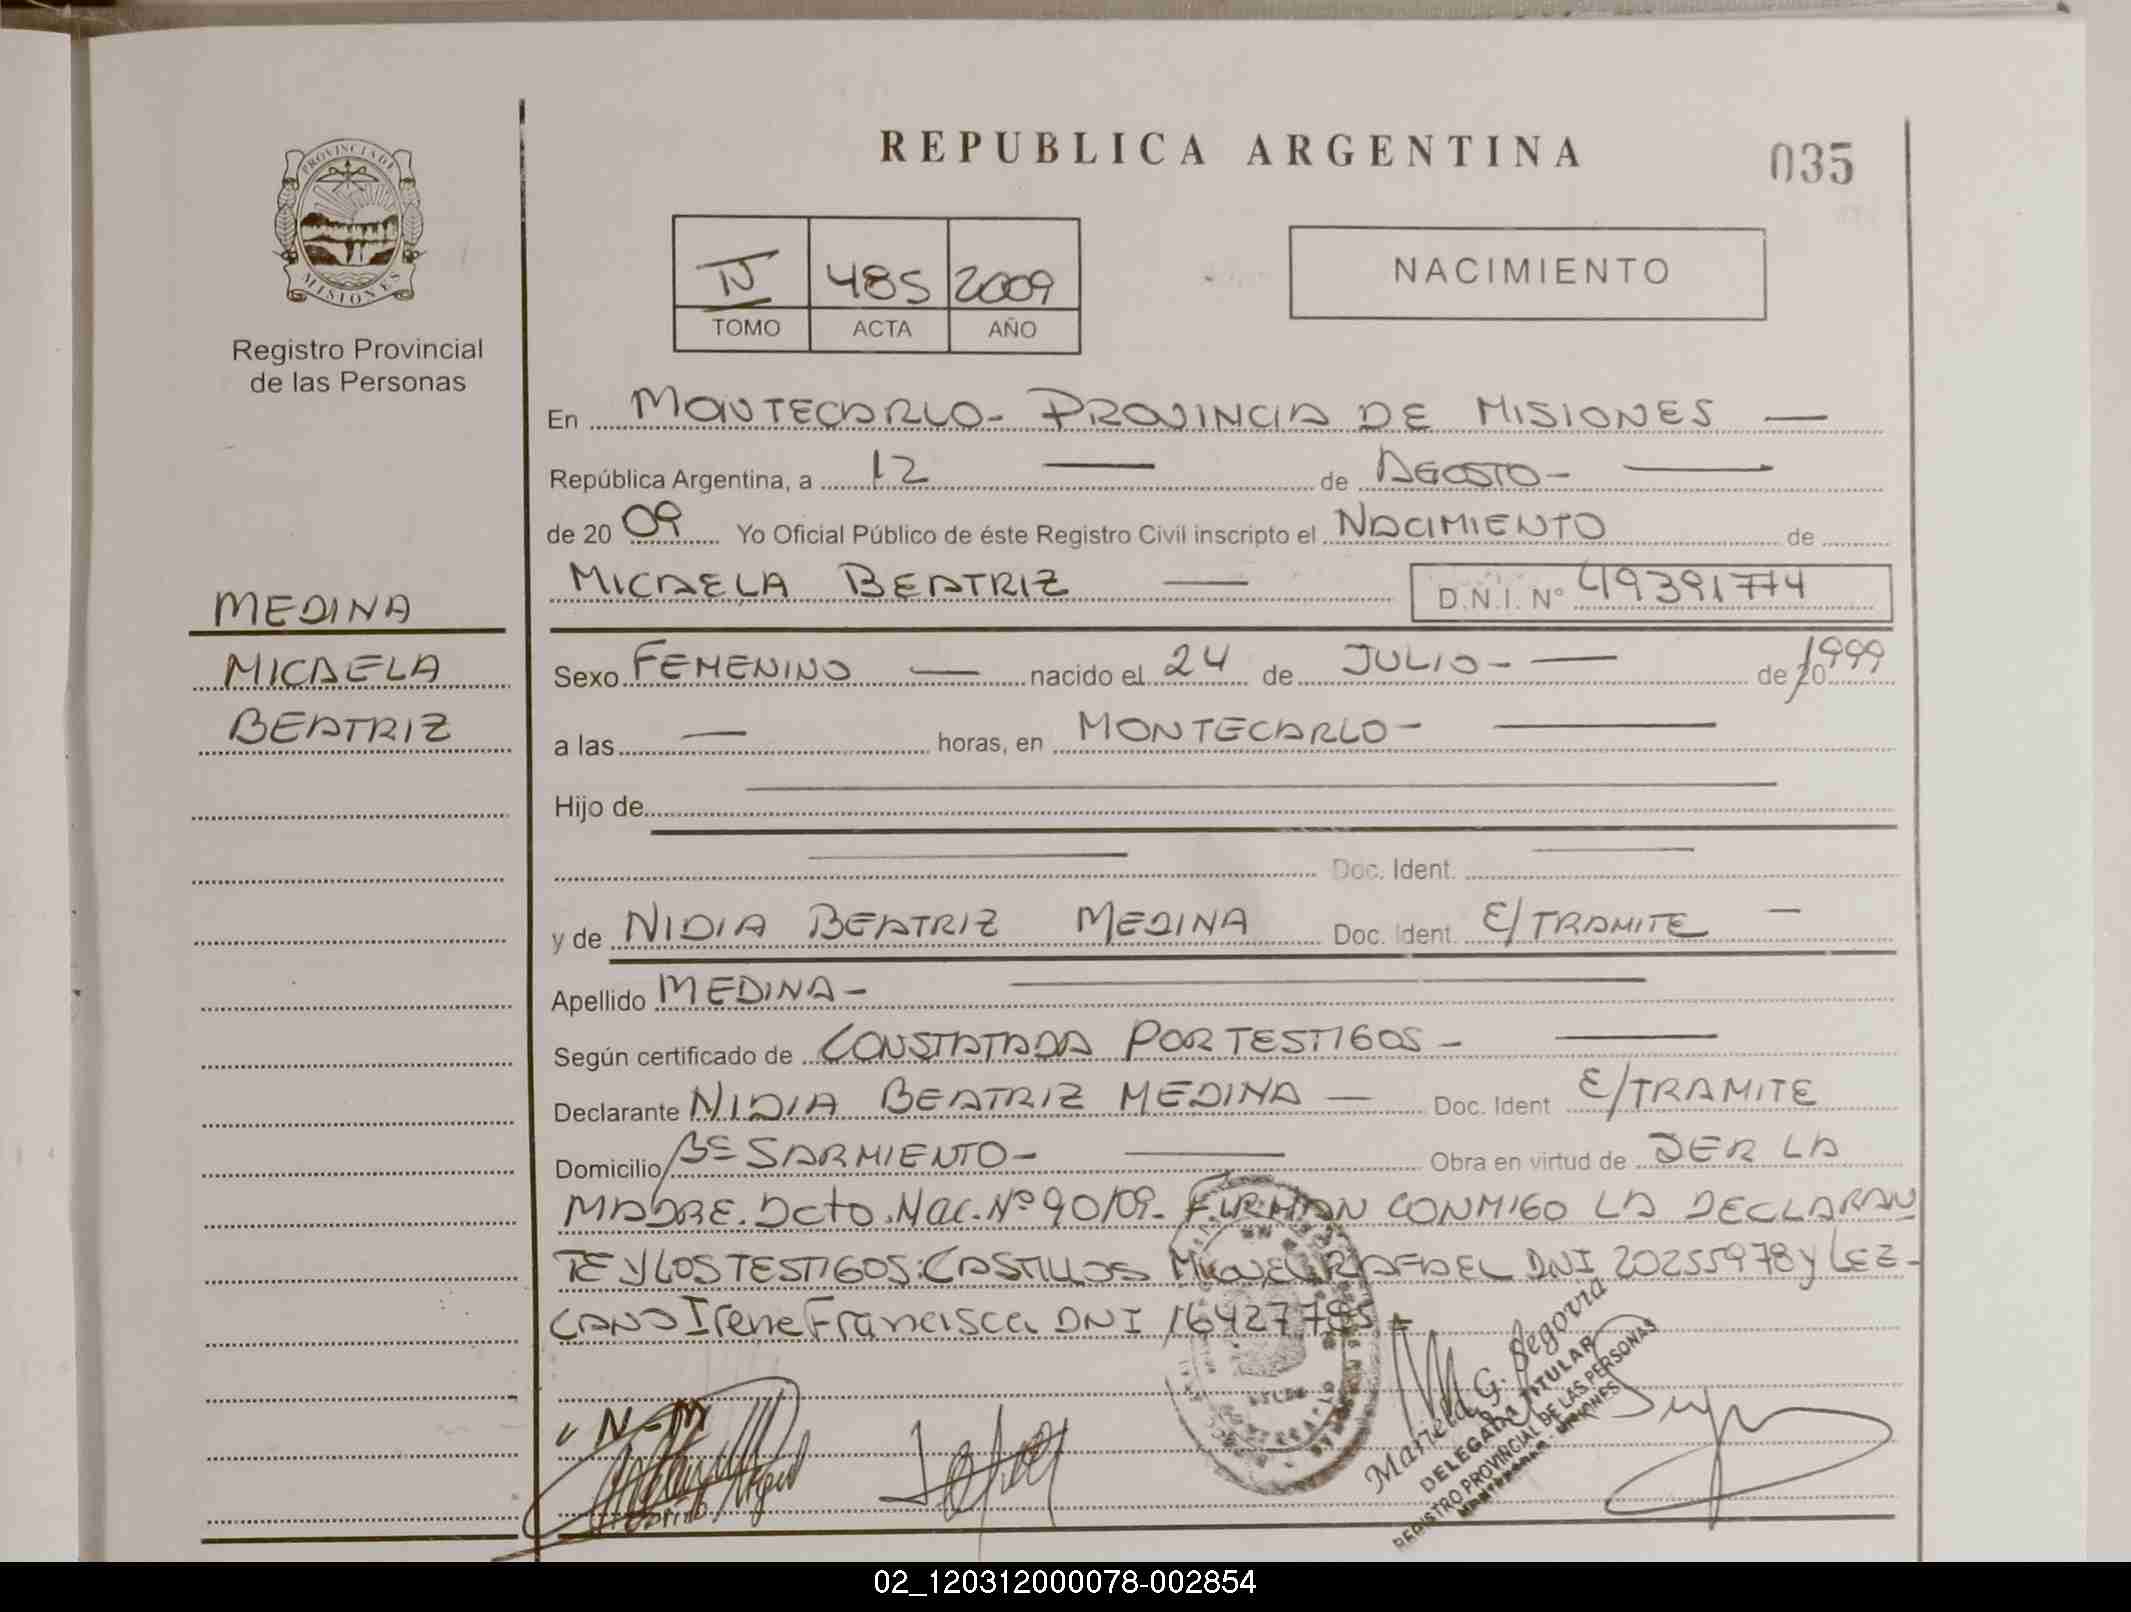 REPUBLICA ARGENTINA
035
PROVINCIA DE
MISIONES
Registro Provincial
de las Personas
IV 485 2009
TOMO ACTA AÑO
NACIMIENTO
En MONTECARLO - PROVINCIA DE MISIONES —
República Argentina, a 12 — de AGOSTO - —
de 20 09 Yo Oficial Público de éste Registro Civil inscripto el NACIMIENTO de
MICAELA BEATRIZ — D.N.I. N° 49391774
MEDINA
MICAELA
BEATRIZ
Sexo FEMENINO — nacido el 24 de JULIO - — de 20 1999
a las — horas, en MONTECARLO - —
Hijo de —
— Doc. Ident. —
y de NIDIA BEATRIZ MEDINA Doc. Ident. E/TRAMITE —
Apellido MEDINA - —
Según certificado de CONSTATADA POR TESTIGOS - —
Declarante NIDIA BEATRIZ MEDINA — Doc. Ident E/TRAMITE
Domicilio Bº SARMIENTO - — Obra en virtud de SER LA
MADRE. Dcto. Nac. Nº 90/09. FIRMAN CONMIGO LA DECLARAN
TE Y LOS TESTIGOS: CASTILLOS MIGUEL RAFAEL DNI 20255978 y LEZ-
CANO Irene Francisca DNI 16427785
N-M
Mariela G. Segovia
DELEGADA TITULAR
REGISTRO PROVINCIAL DE LAS PERSONAS
MONTECARLO - MISIONES
02_120312000078-002854